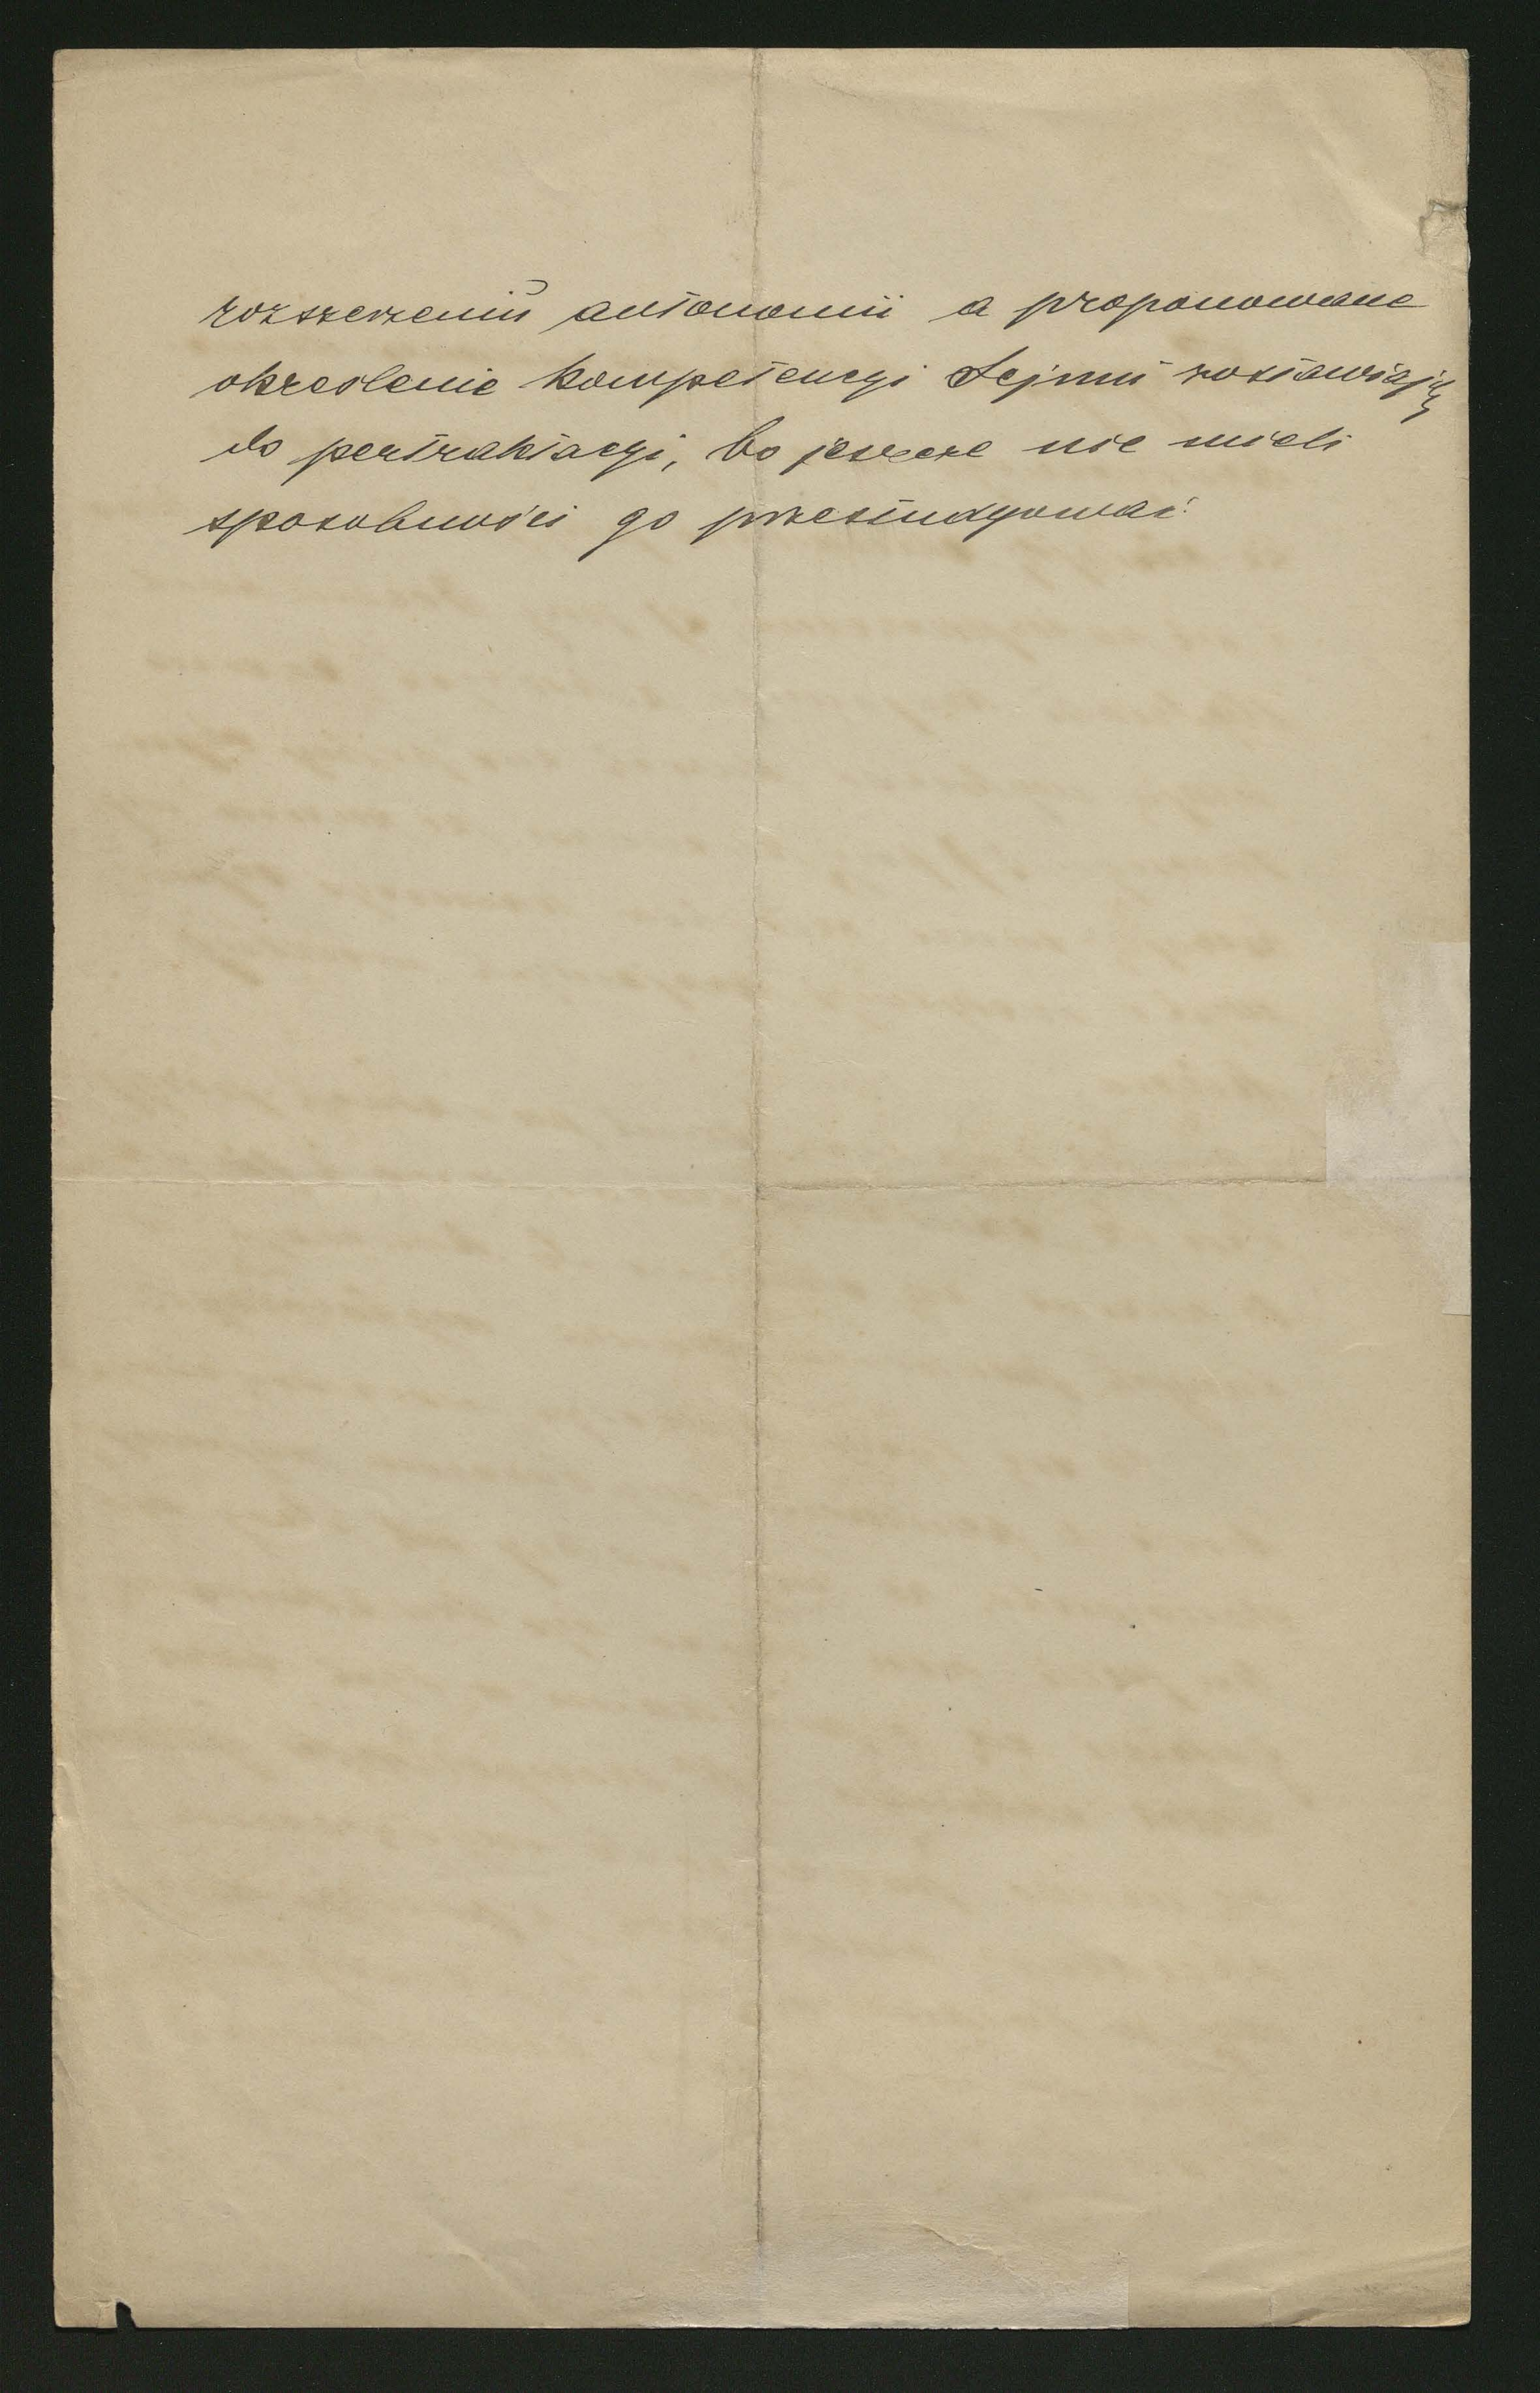 rozszerzeniu autonomii a proponowane
określenie kompetencyi Sejmu zostawiają
do pertraktacyi, bo jeszcze nie mieli
sposobności go przestudyować.